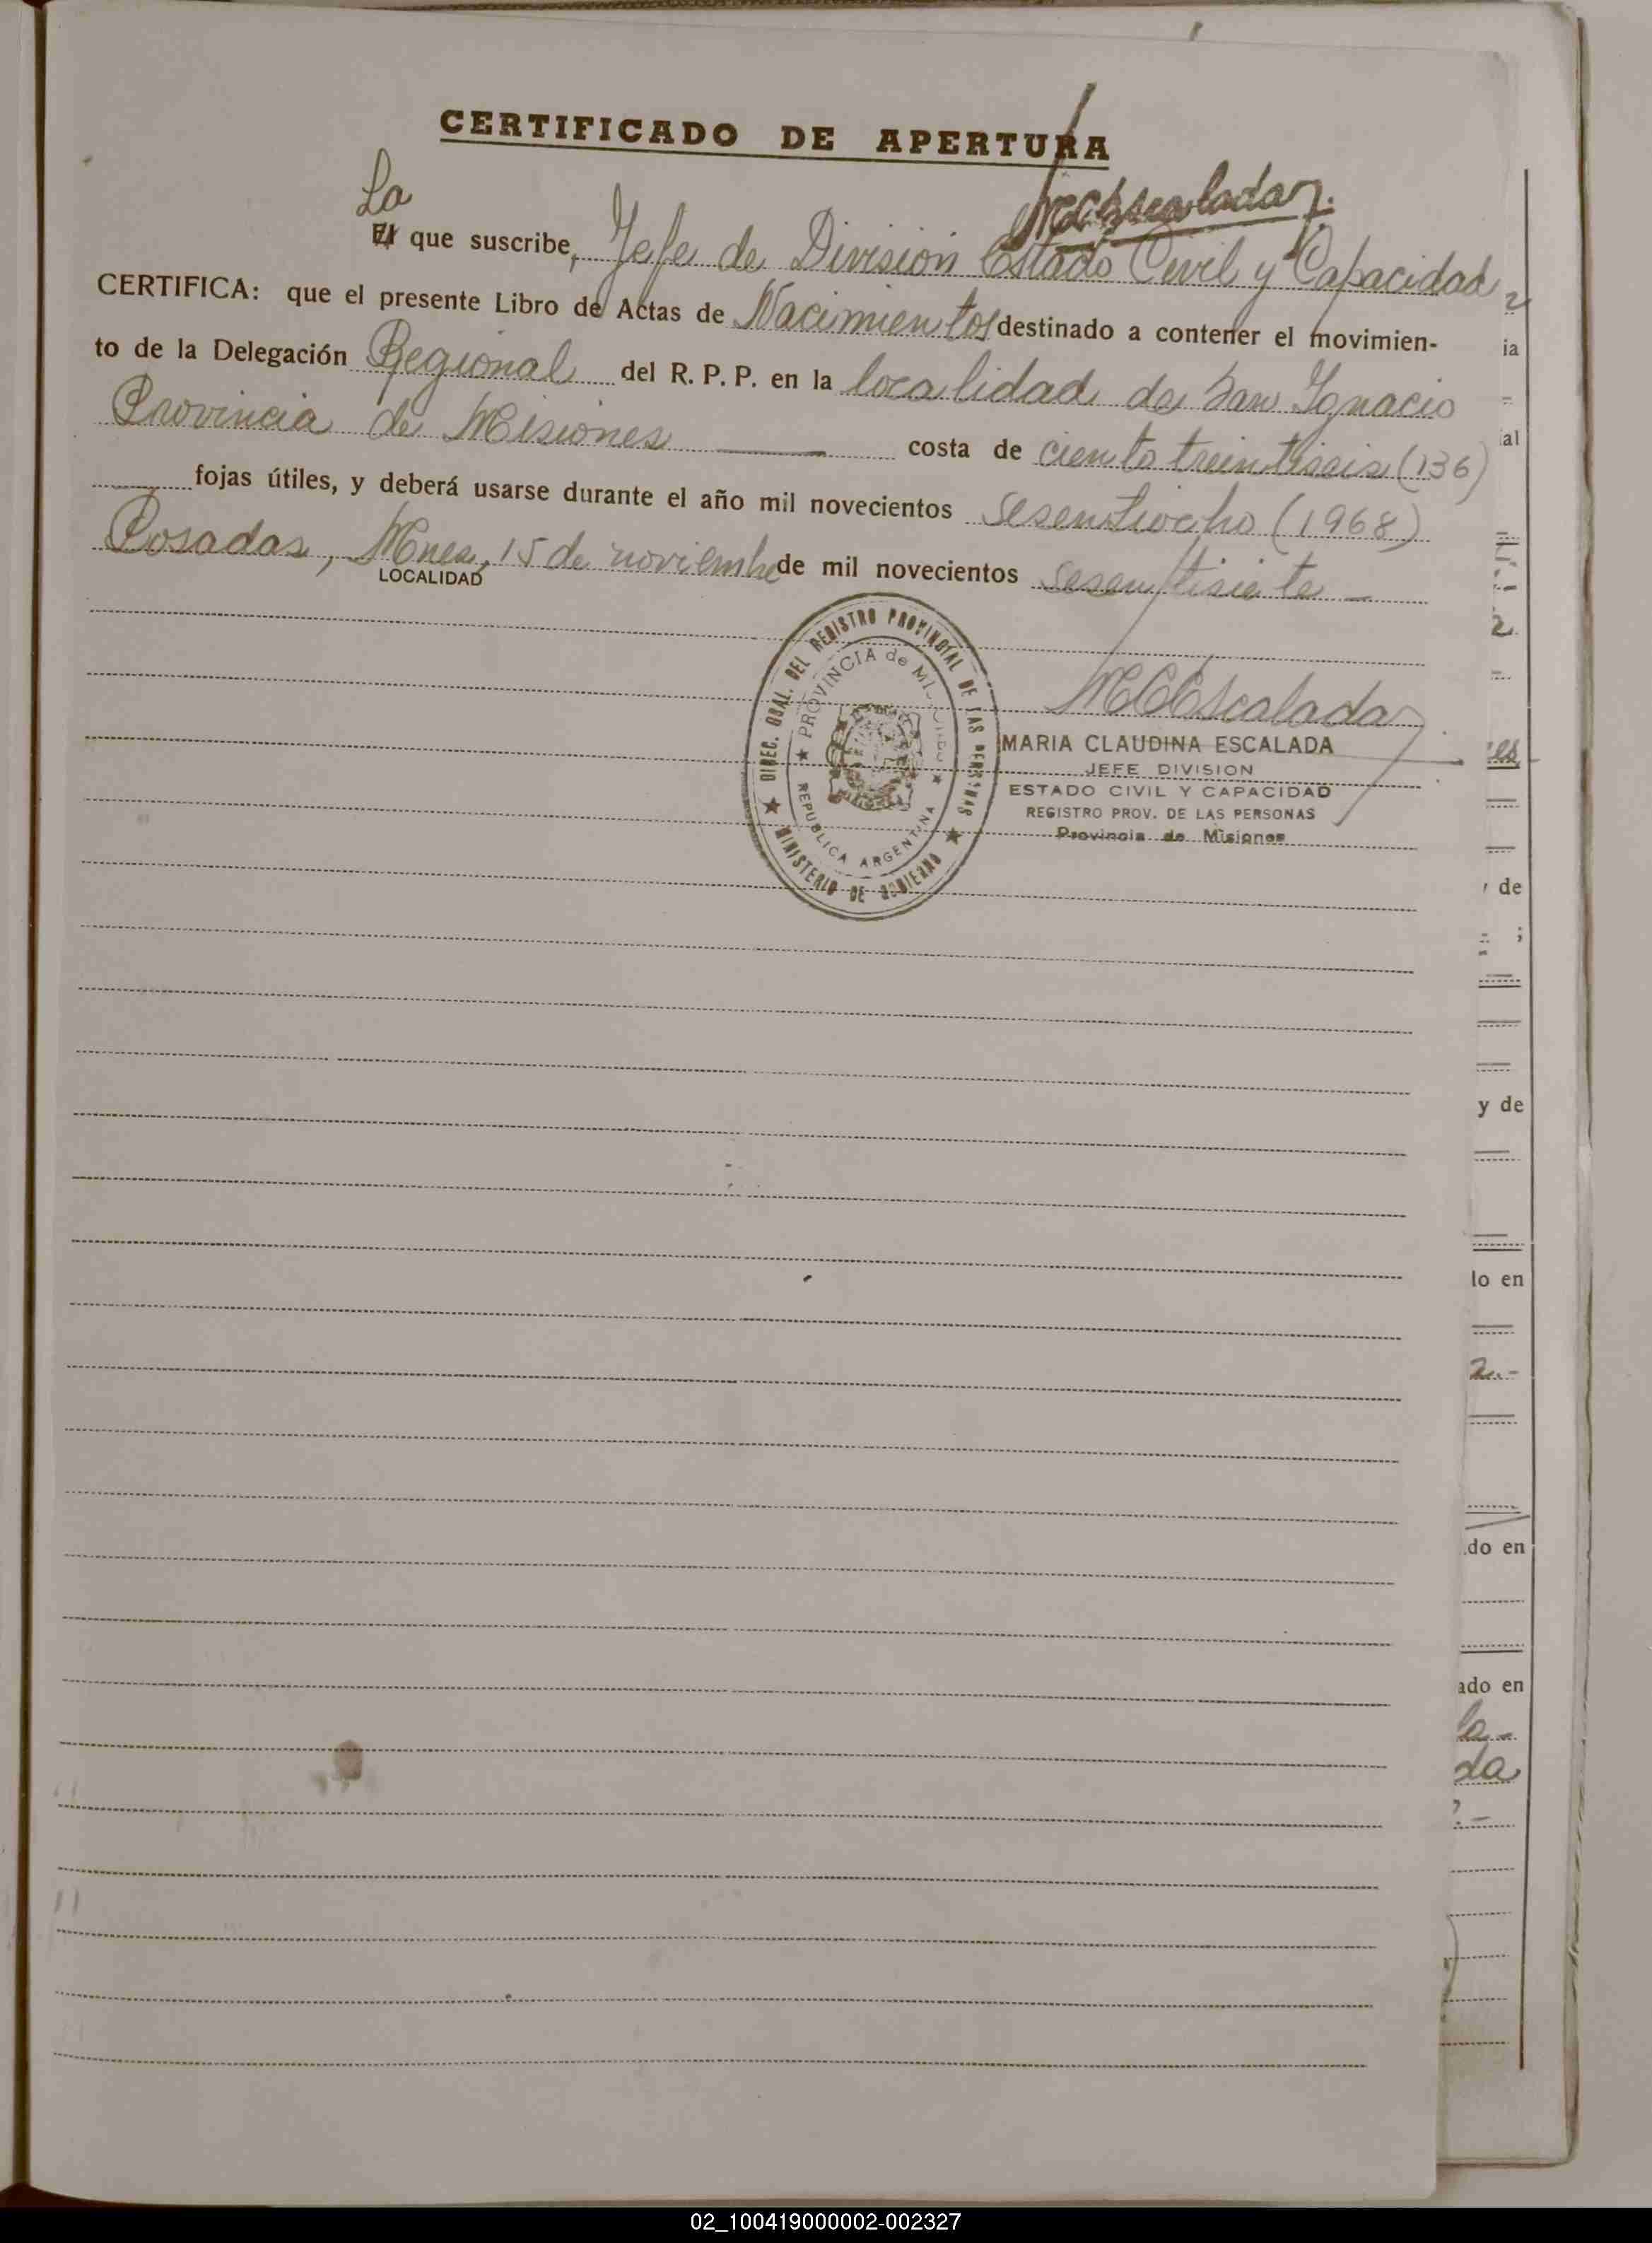 CERTIFICADO DE APERTURA
MCEscalada
La
El que suscribe, Jefe de División Estado Civil y Capacidad
CERTIFICA: que el presente Libro de Actas de Nacimientos destinado a contener el movimien-
to de la Delegación Regional del R. P. P. en la localidad de San Ignacio
Provincia de Misiones costa de ciento treintiseis (136)
fojas útiles, y deberá usarse durante el año mil novecientos sesentiocho (1968)
Posadas, Mnes, 15 de noviembre de mil novecientos sesentisiete -
LOCALIDAD
DIREC. GRAL. DEL REGISTRO PROVINCIAL DE LAS PERSONAS
MINISTERIO DE GOBIERNO
PROVINCIA de MISIONES
REPUBLICA ARGENTINA
MCEscalada
MARIA CLAUDINA ESCALADA
JEFE DIVISION
ESTADO CIVIL Y CAPACIDAD
REGISTRO PROV. DE LAS PERSONAS
Provincia de Misiones
ia
al
y de
y de
lo en
do en
ado en
la -
da
02_100419000002-002327